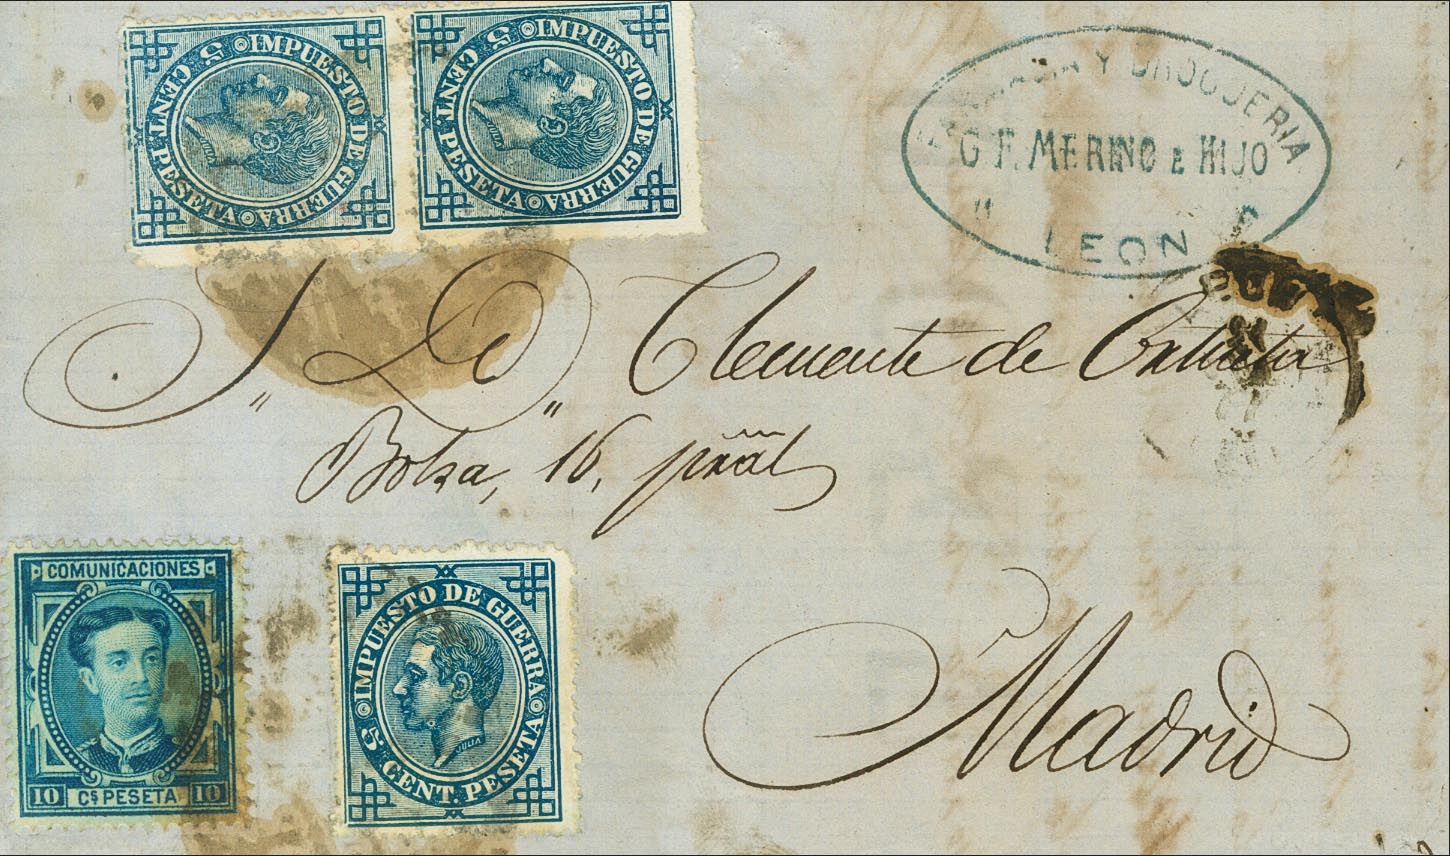 IMPUESTO DE GUERRA
5 CENT. PESETA
JULIA
IMPUESTO DE GUERRA
5 CENT. PESETA
JULIA
Y DROGUERIA
G. F. MERINO E HIJO
LEON
S. D. Clemente de
Bolsa, 16, pral
Madrid
COMUNICACIONES
10 Cs PESETA 10
IMPUESTO DE GUERRA
5 CENT. PESETA
JULIA